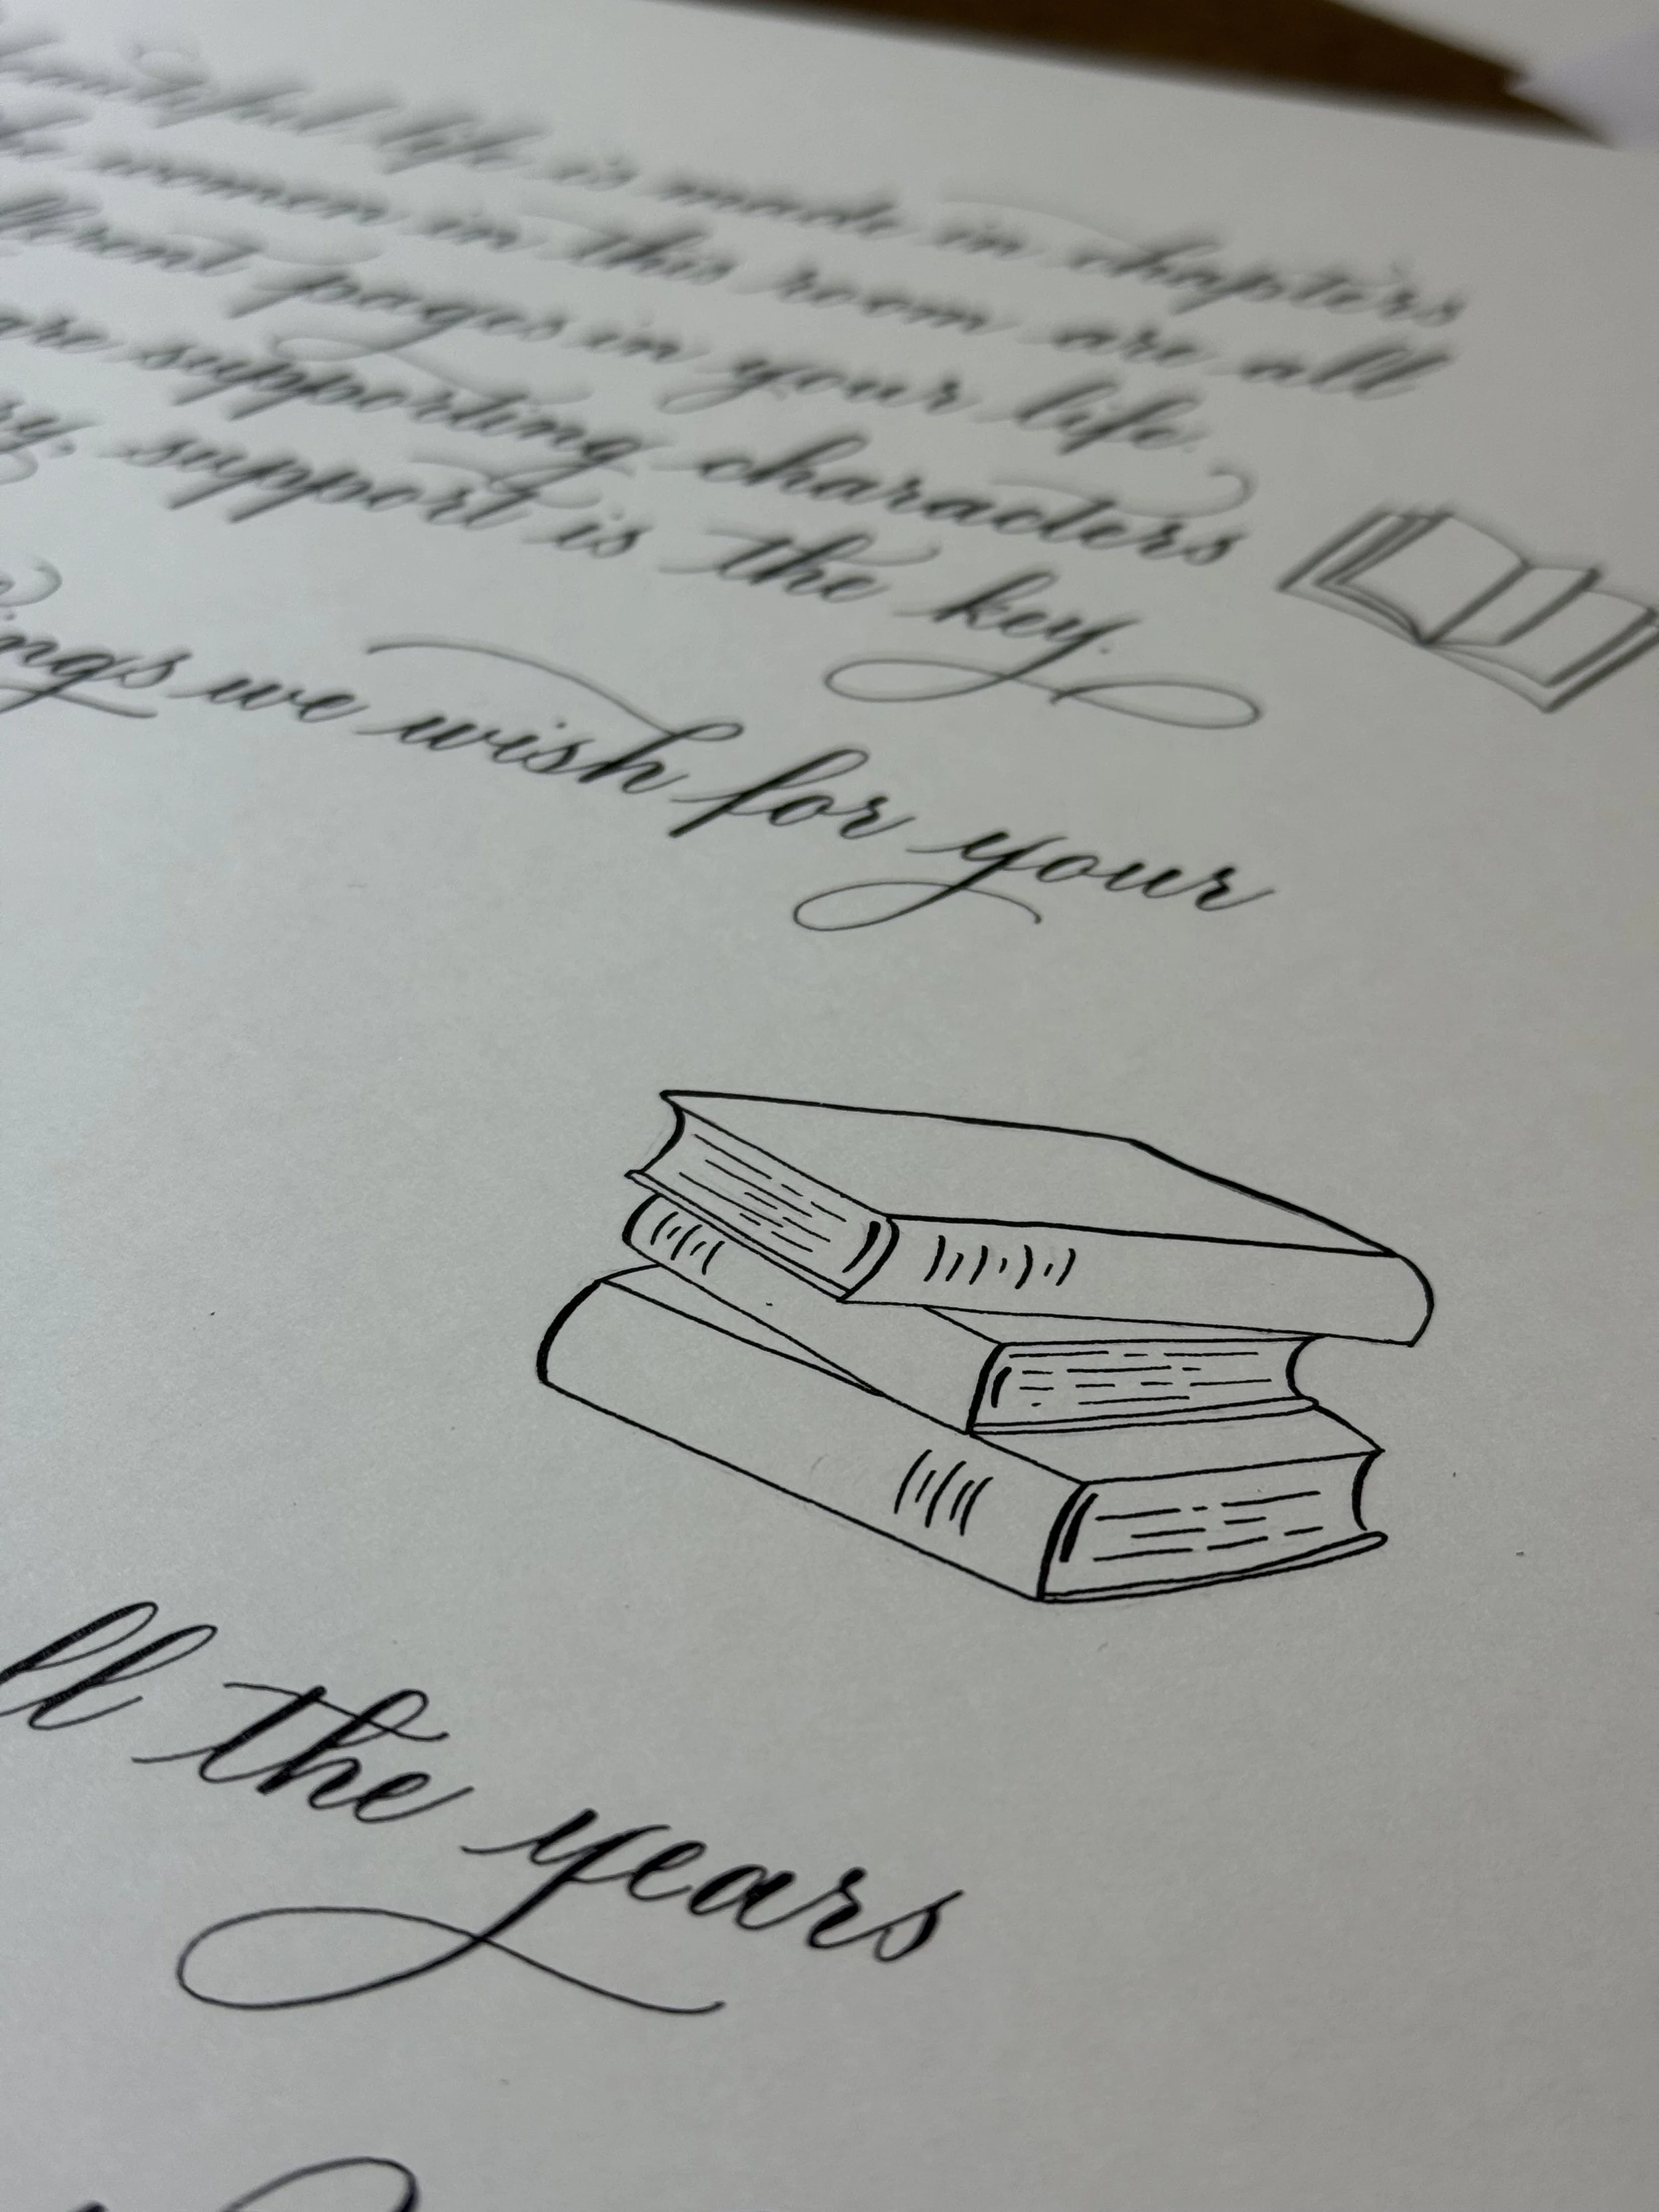 life is made in chapters
women in this room are all
pages in your life.
are supporting characters
support is the key.
we wish for your
the years